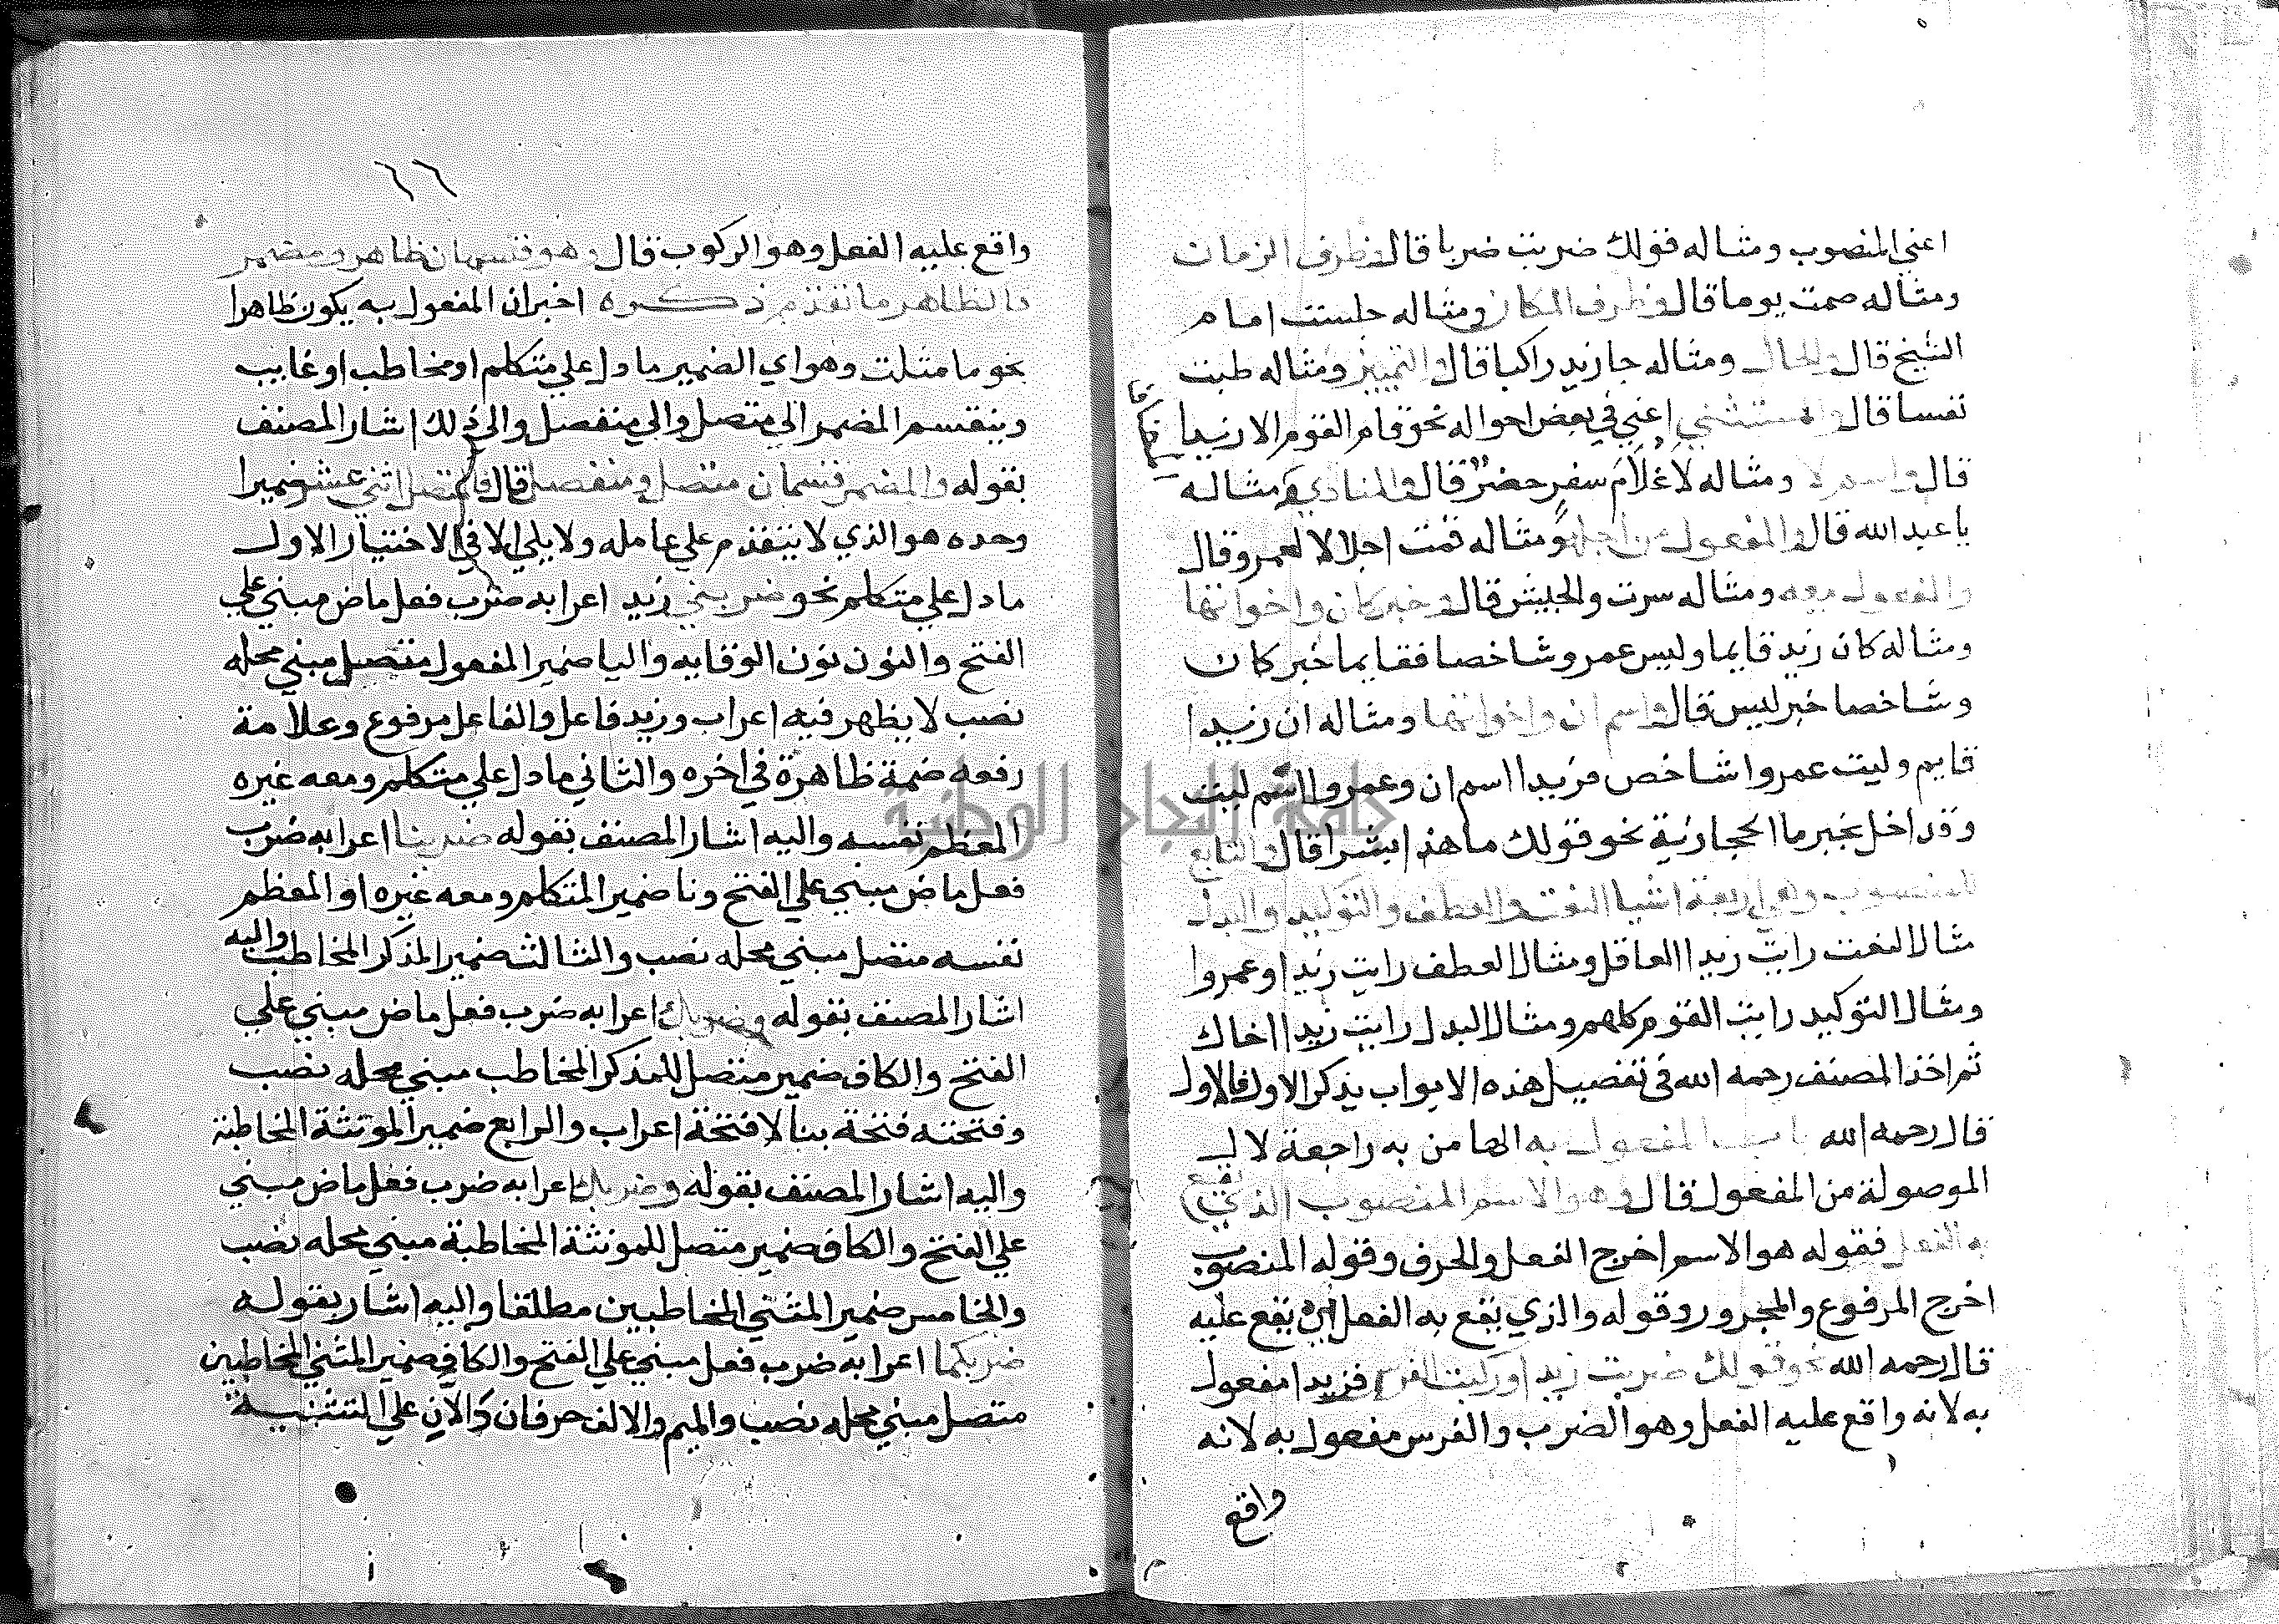 اعني المنصوب ومثاله قولك ضربت ضربا قال وظرف الزمان
ومثاله صمت يوما قال وظرف المكان ومثاله جلست امام
الشيخ قال والحال ومثاله جا زيد راكبا قال والتمييز ومثاله طبت
نفسا قال والمستثني اعني في بعض احواله نحو قام القوم الا زيدا
قال واسم لا ومثاله لا غلام سفر حضر قال والمنادي ومثاله
يا عبد الله قال والمفعول من اجله ومثاله قمت اجلالا لعمرو قال
والمفعول معه ومثاله سرت والجيش قال وخبر كان واخواتها
ومثاله كان زيد قايما وليس عمرو شاخصا فقايما خبر كان
وشاخصا خبر ليس قال واسم ان واخواتها ومثاله ان زيدا
قايم وليت عمروا شاخص فزيدا اسم ان وعمروا اسم ليت
وقد اخل بخبر ما الحجازية نحو قولك ما هذا بشرا قال والتابع
للمنصوب وهي اربعة اشيا النعت والعطف والتوكيد والبدل
مثال النعت رايت زيدا العاقل ومثال العطف رايت زيدا وعمروا
ومثال التوكيد رايت القوم كلهم ومثال البدل رايت زيدا اخاك
ثم اخذ المصنف رحمه الله في تفصيل هذه الابواب يذكر الاول فالاول
قال رحمه الله باب المفعول به الها من به راجعة لال
الموصولة من المفعول قال وهو الاسم المنصوب الذي يقع
به الفعل فقوله هو الاسم اخرج الفعل والحرف وقوله المنصوب
اخرج المرفوع والمجرور وقوله والذي يقع به الفعل اي يقع عليه
قال رحمه الله نحو قولك ضربت زيدا وركبت الفرس فزيدا مفعول
به لانه واقع عليه الفعل وهو الضرب والفرس مفعول به لانه
واقع
١٦
واقع عليه الفعل وهو الركوب قال وهو قسمان ظاهر ومضمر
فالظاهر ما تقدم ذكره اخبر ان المفعول به يكون ظاهرا
نحو ما مثلت وهو اي الضمير ما دل علي متكلم او مخاطب او غايب
وينقسم المضمر الي متصل والي منفصل والي ذلك اشار المصنف
بقوله والمضمر قسمان متصل ومنفصل قال فالمتصل اثني عشر ضميرا
وحده هو الذي لا يتقدم علي عامله ولا يلي الا في الاختيار الاول
ما دل علي متكلم نحو ضربني زيد اعرابه ضرب فعل ماض مبني علي
الفتح والنون نون الوقايه واليا ضمير المفعول متصل مبني محله
نصب لا يظهر فيه اعراب وزيد فاعل والفاعل مرفوع وعلامة
رفعه ضمة ظاهرة في اخره والثاني ما دل علي متكلم ومعه غيره
المعظم نفسه واليه اشار المصنف بقوله ضربنا اعرابه ضرب
فعل ماض مبني علي الفتح ونا ضمير المتكلم ومعه غيره او المعظم
نفسه متصل مبني محله نصب والثالث ضمير المذكر المخاطب واليه
اشار المصنف بقوله وضربك اعرابه ضرب فعل ماض مبني علي
الفتح والكاف ضمير متصل للمذكر المخاطب مبني محله نصب
وفتحته فتحة بنا لا فتحة اعراب والرابع ضمير المونثة المخاطبة
واليه اشار المصنف بقوله وضربك اعرابه ضرب فعل ماض مبني
علي الفتح والكاف ضمير متصل للمونثة المخاطبة مبني محله نصب
والخامس ضمير المثني المخاطبين مطلقا واليه اشار بقوله
ضربكما اعرابه ضرب فعل مبني علي الفتح والكاف ضمير المثني المخاطبين
متصل مبني محله نصب والميم والالف حرفان دالان علي التثنية
جامعة النجاح الوطنية